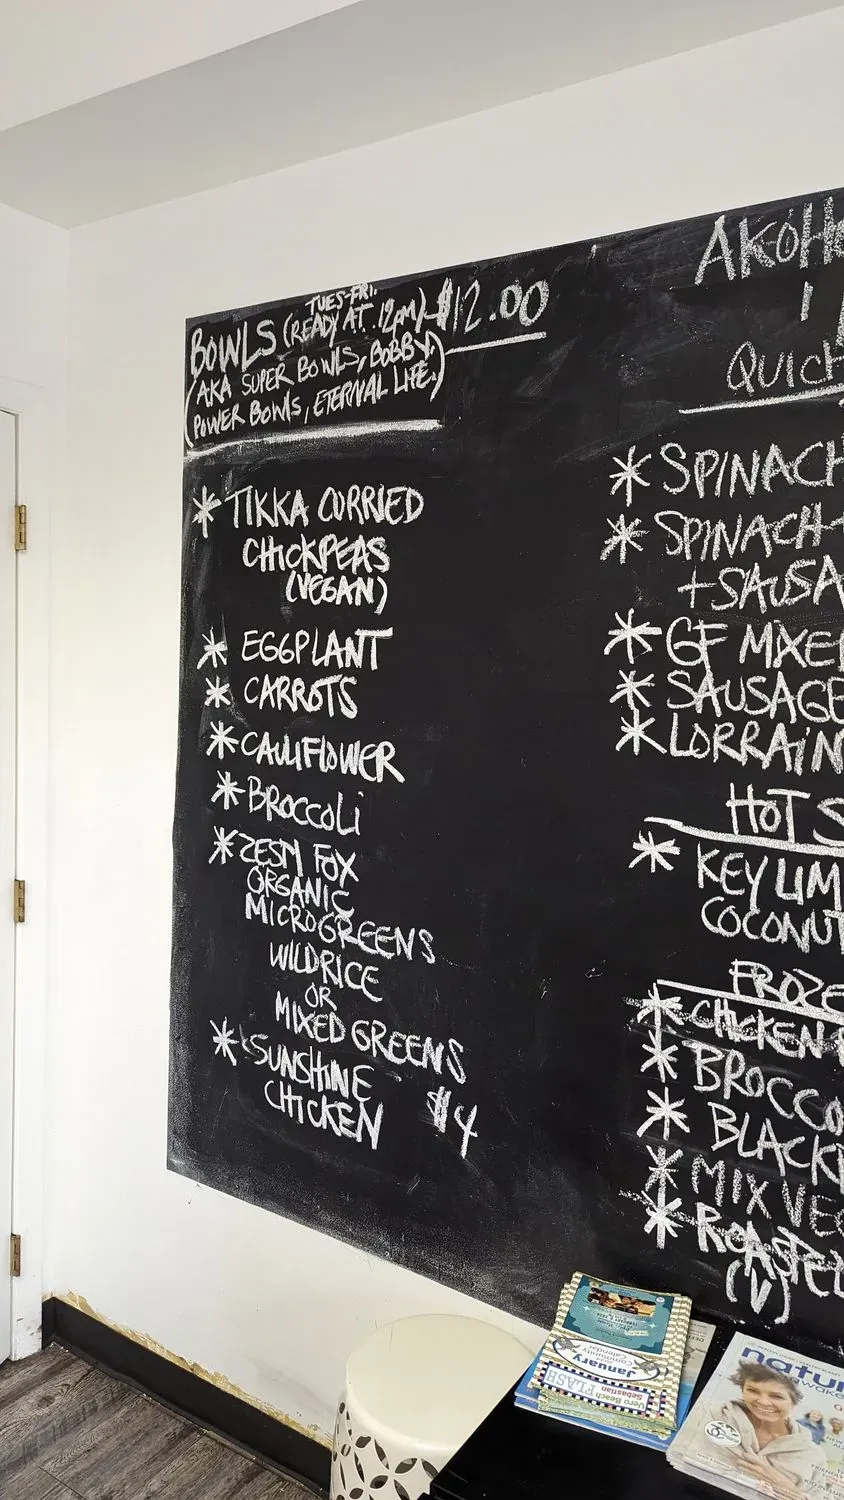 TUES-FRI.
BOWLS (READY AT 12PM) $12.00
(AKA SUPER BOWLS, BOBBY
POWER BOWLS, ETERNAL LIFE.)
* TIKKA CURRIED
CHICKPEAS
(VEGAN)
* EGGPLANT
* CARROTS
* CAULIFLOWER
* BROCCOLI
* ZESTY FOX
ORGANIC
MICROGREENS
WILDRICE
OR
MIXED GREENS
* SUNSHINE
CHICKEN $4
QUICH
* SPINACH
* SPINACH
+SAUSA
* GF MIXE
* SAUSAGE
* LORRAIN
HOT S
* KEY LIM
COCONUT
FROZE
* CHICKEN
* BROCCO
* BLACK
* MIX VE
* ROASTE
(V)
Vero Beach
Sebastian
FLASH
January
Community
Calendar
natur
awake